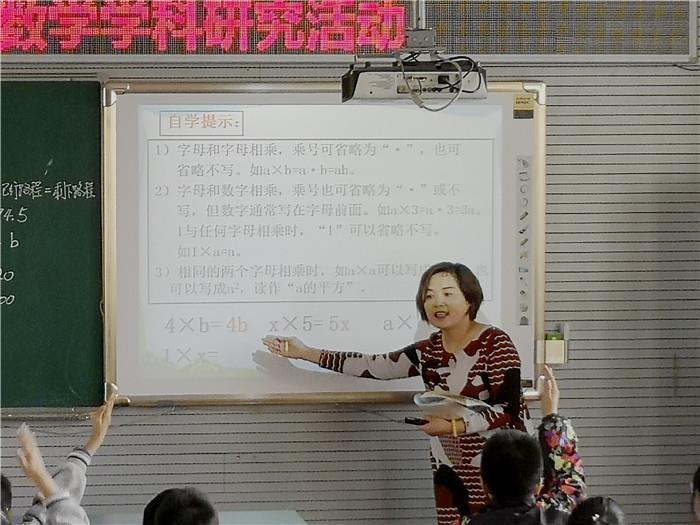 数学学科研究活动
自学提示:
1）字母和字母相乘，乘号可省略为“·”，也可
省略不写。如a×b=a·b=ab。
2）字母和数字相乘，乘号也可省略为“·”或不
写，但数字通常写在字母前面。如a×3=a·3=3a。
1与任何字母相乘时，“1”可以省略不写。
如1×a=a。
3）相同的两个字母相乘时，如a×a可以写 也
可以写成a²，读作“a的平方”。
4×b=4b x×5=5x a×
1×x=
路程=剩下路程
74.5
b
20
00